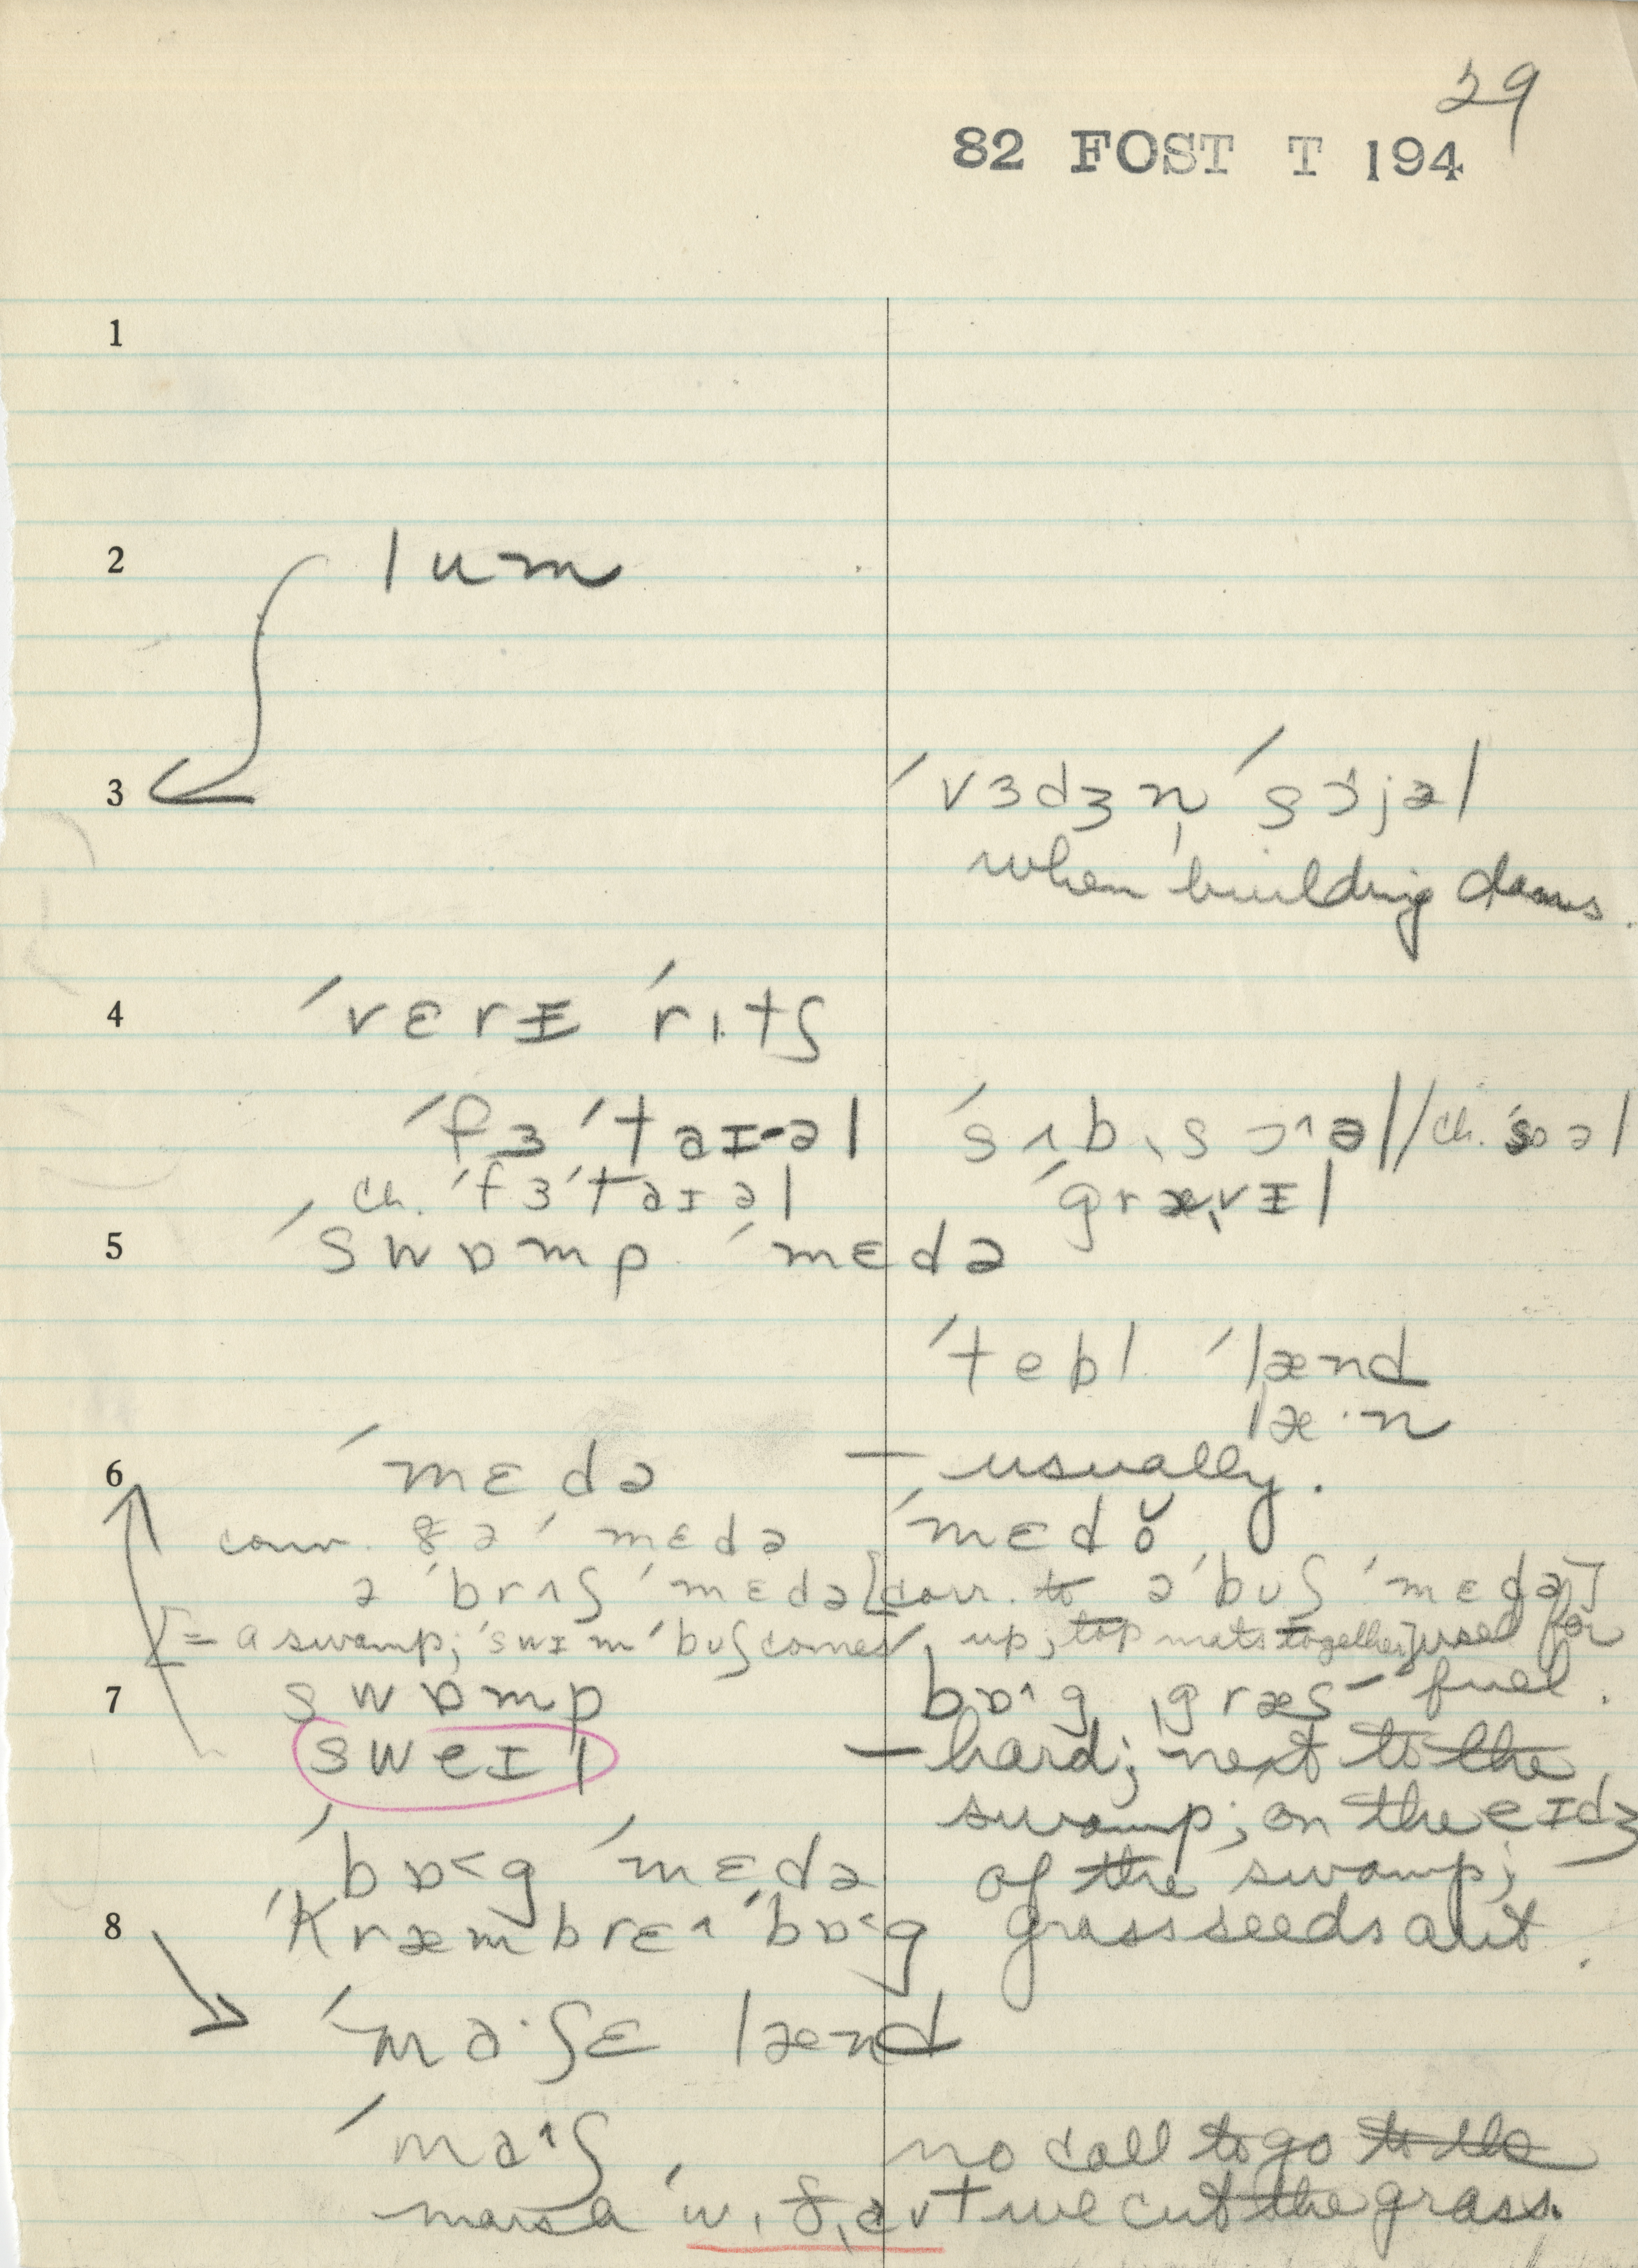 29
82 FOST T 194
1
2 lum
3 ˈvɜdʒn̩ ˈsɔjəl
when building dams.
4 ˈvɛrɪ ˈrɪtʃ
ˈfɜˈtaɪəl ˈsʌbˌsɔ^əl // ch. ˈsoəl
ch. ˈfɜˈtaɪəl ˈgrævɪl
5 ˈswɒmp ˈmɛdə
ˈtebl ˈlænd
læ·n
6 ˈmɛdə — usually.
conv. ðə ˈmɛdə ˈmɛdŏ
ə ˈbrʌʃ ˈmɛdə [corr. to ə ˈbʊʃ ˈmɛdə]
[= a swamp; ˈswɪm ˈbʊʃ comes up, top mats together] used for
7 swɒmp bɒ^g ˌgræs — fuel.
sweɪl — hard; next to the
swamp; on the eɪdʒ
ˈbɒ<g ˈmɛdə of the swamp;
8 ˈkræmbrɛ^ ˈbɒ<g grass seeds out.
ˈma·ʃɛ lænd
ˈma^ʃ no call to go to the
marsh wɪðˌaʊt we cut the grass.